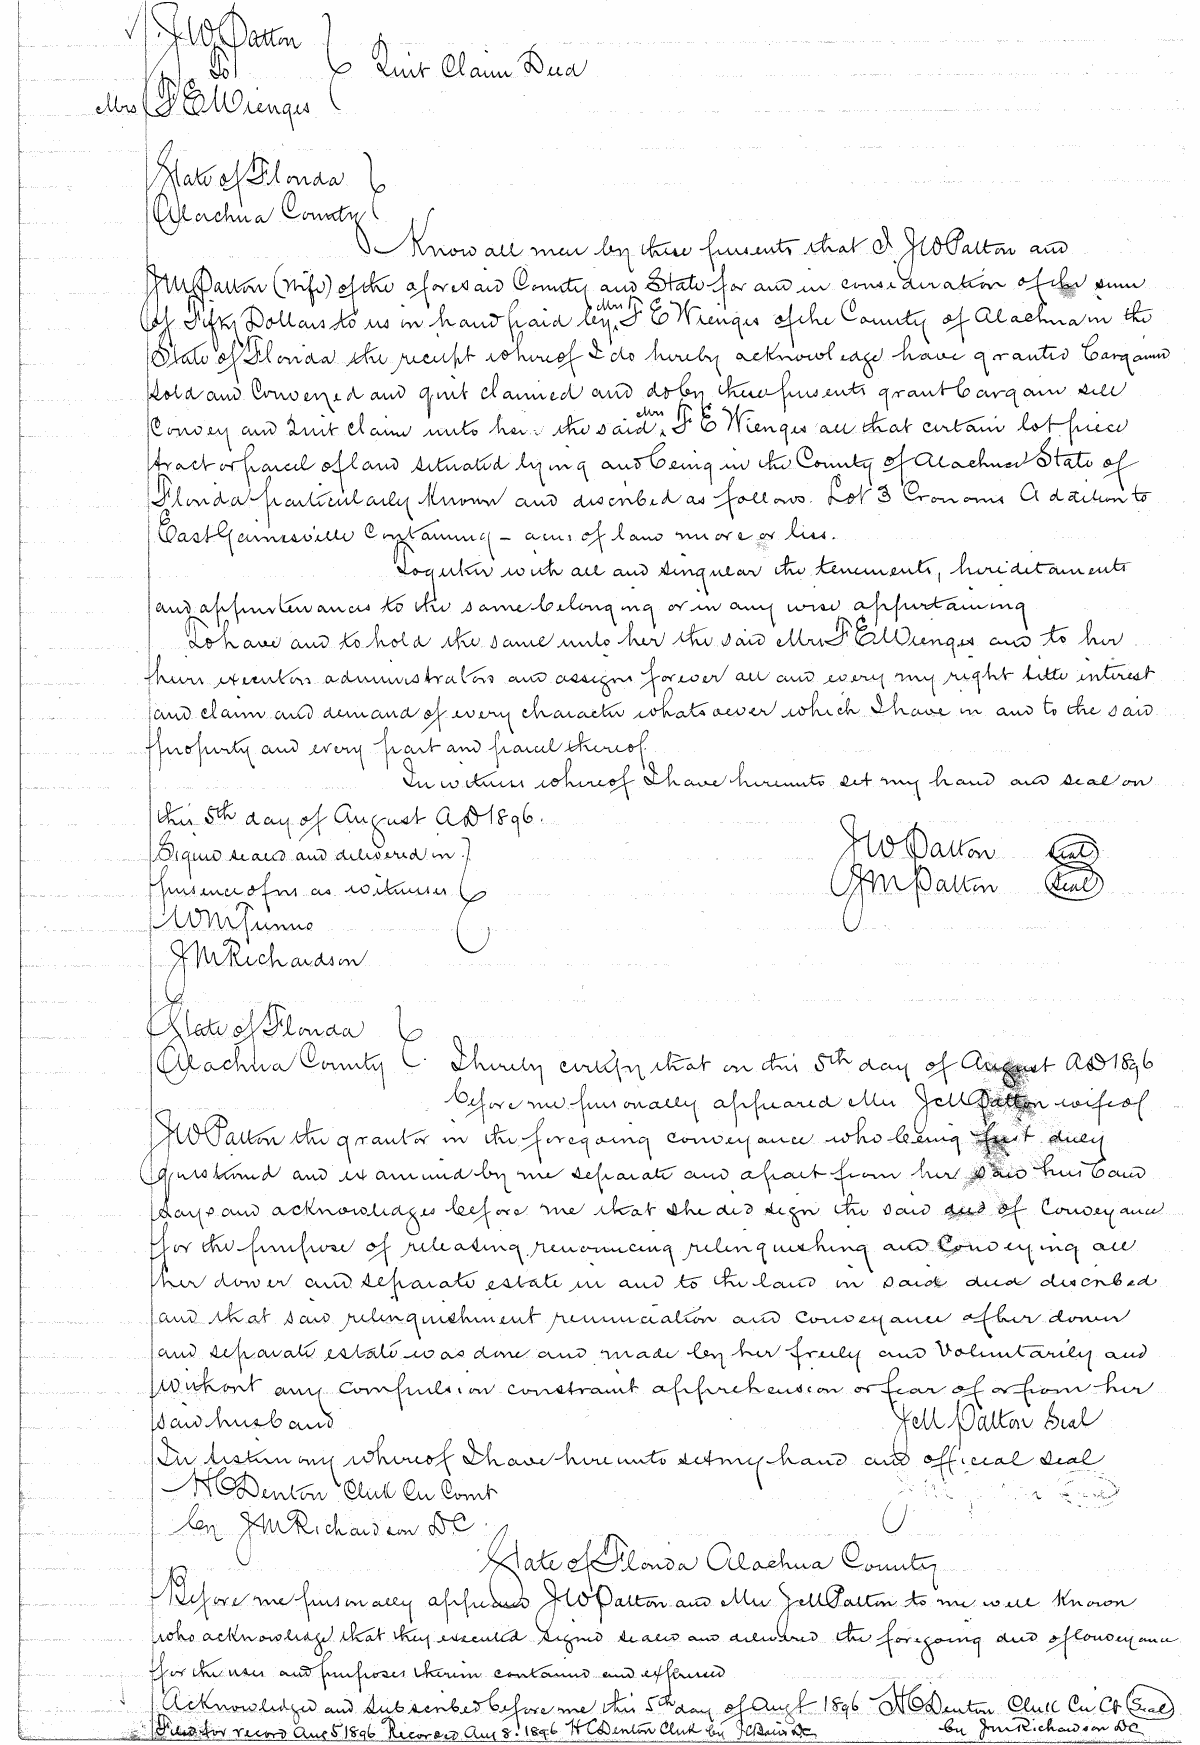 J W Patton
To
Mrs F E Wienges
Quit Claim Deed
State of Florida
Alachua County
Know all men by these presents that I J W Patton and
J M Patton (wife) of the aforesaid County and State for and in consideration of the sum
of Fifty Dollars to us in hand paid by Mrs F E Wienges of the County of Alachua in the
State of Florida the receipt whereof I do hereby acknowledge have granted bargained
sold and Conveyed and quit claimed and do by these presents grant bargain sell
Convey and Quit claim unto her the said Mrs F E Wienges all that certain lot piece
tract or parcel of land situated lying and being in the County of Alachua State of
Florida particularly known and discribed as follows. Lot 3 Addition to
East Gainesville Containing - acres of land more or less.
Together with all and singular the tenements, hereidetaments
and appurtenances to the same belonging or in any wise appurtaining
To have and to hold the same unto her the said Mrs F E Wienges and to her
heirs executors administrators and assigns forever all and every my right title interest
and claim and demand of every character whatsoever which I have in and to the said
property and every part and parcel thereof.
In witness whereof I have hereunto set my hand and seal on
this 5th day of August AD 1896.
Signed sealed and delivered in
presence of us as witnesses
J W Patton Seal
J M Patton Seal
J M Richardson
State of Florida
Alachua County
I hereby certify that on this 5th day of August AD 1896
before me personally appeared Mrs Jell Patton wife of
J W Patton the grantor in the foregoing conveyance who being first duly
questioned and examined by me separate and apart from her said husband
says and acknowledges before me that she did sign the said deed of Conveyance
for the purpose of releasing, renouncing relinquishing and Conveying all
her dower and separate estate in and to the land in said deed discribed
and that said relinquishment renunciation and conveyance of her dower
and separate estate was done and made by her freely and Voluntarily and
without any compulsion constraint apprehension or fear of or from her
said husband
Jell Patton Seal
In testimony whereof I have hereunto set my hand and official seal
H C Denton Clerk Cir Court
by J M Richardson DC
State of Florida Alachua County
Before me personally appeared J W Patton and Mrs Jell Patton to me well known
who acknowledge that they executed signed sealed and delivered the foregoing deed of conveyance
for the uses and purposes therein contained and expressed
Acknowledged and Subscribed before me this 5th day of Augt 1896 H C Denton Clerk Cir Ct Seal
by J M Richardson DC
Filed for record Aug 5 1896 Recorded Aug 8. 1896 H C Denton Clerk by DC